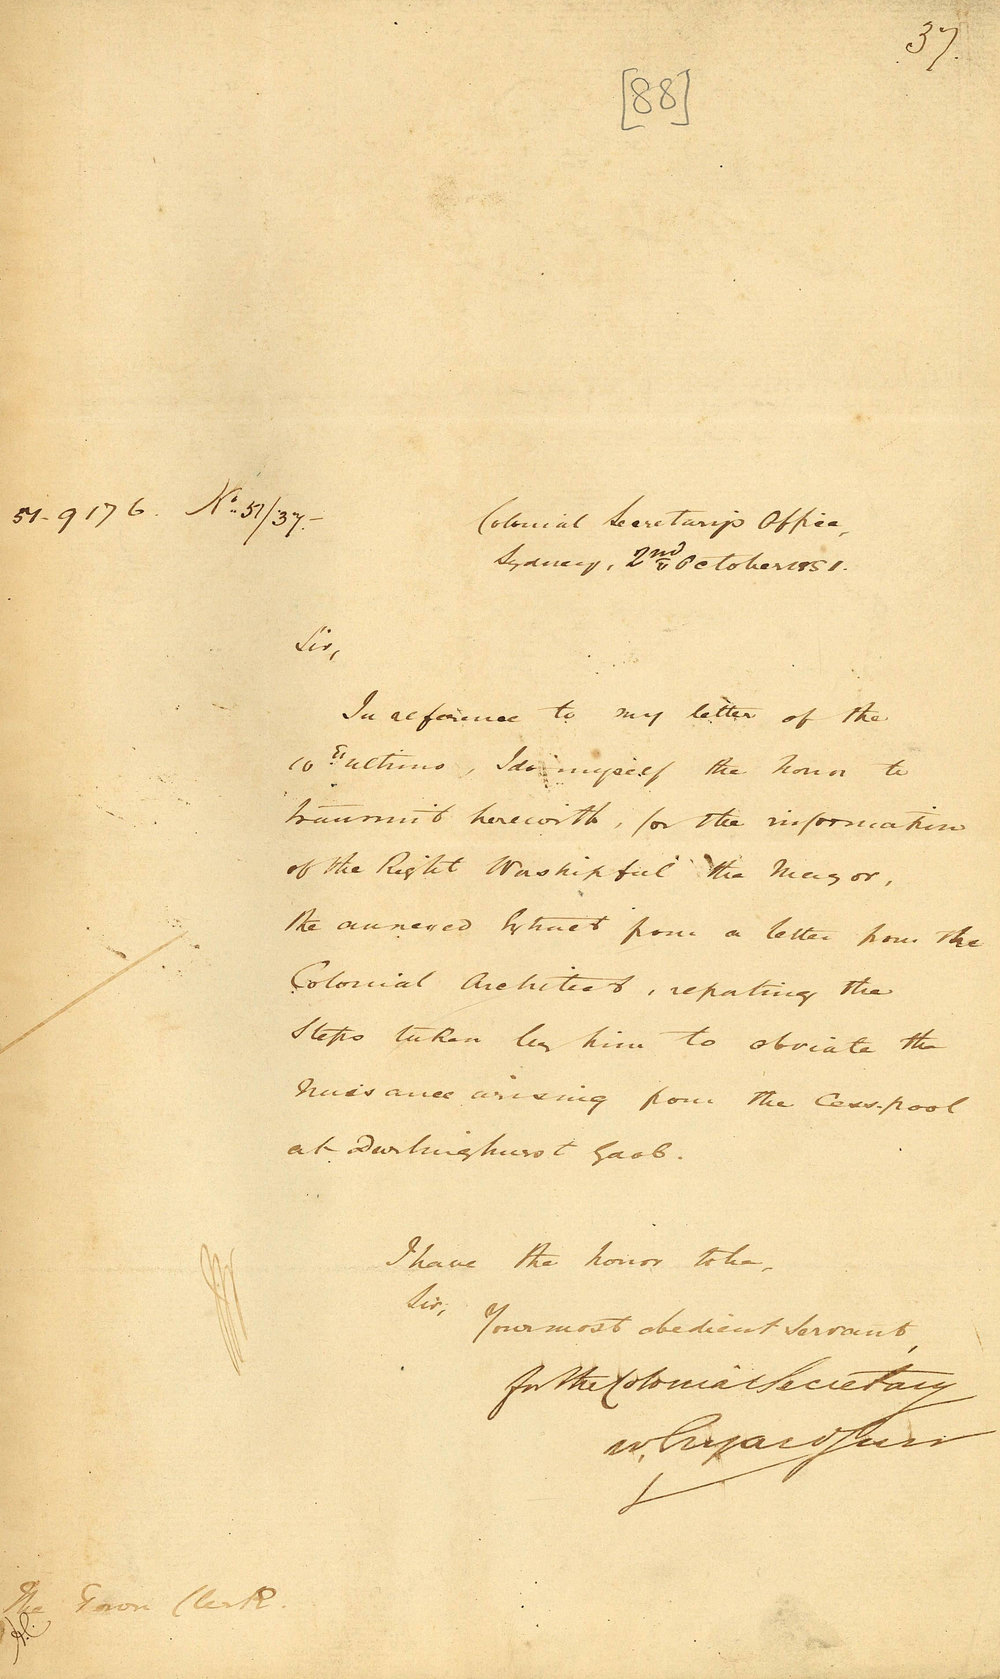 37.
[88]
51-9176. No. 51/37.-
Colonial Secretary's Office,
Sydney, 2nd October 1851.
Sir,
In reference to my letter of the
10th ultimo, I do myself the honor to
transmit herewith, for the information
of the Right Worshipful the Mayor,
the annexed Extract from a letter from the
Colonial Architect, reporting the
Steps taken by him to obviate the
nuisance arising from the Cess-pool
at Darlinghurst Gaol.
I have the honor to be,
Sir,
Your most obedient Servant,
for the Colonial Secretary
W.
The Town Clerk.